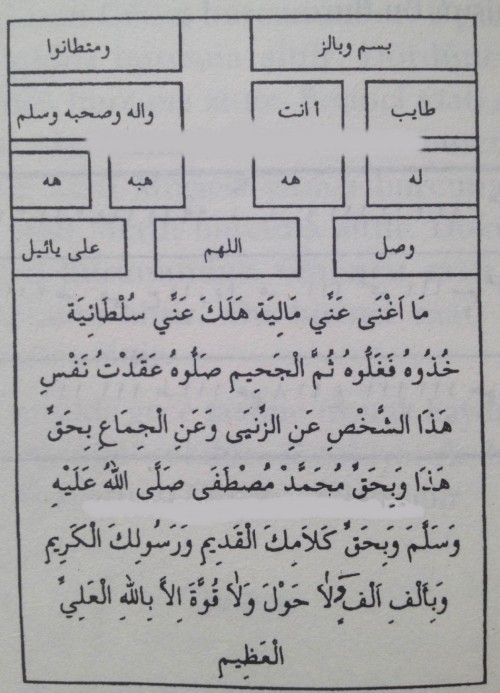 بسم وبالز ومتطانوا
طايب أانت واله وصحبه وسلم
له هه هبه هه
وصل اللهم على يائيل
مَا اَغْنَى عَنِّي مَالِيَة هَلَكَ عَنِّي سُلْطَانِيَة
خُذُوهُ فَغَلُّوهُ ثُمَّ الْجَحِيمِ صَلُّوهُ عَقَدْتُ نَفْسِ
هَذَا الشَّخْصِ عَنِ الزَّنِيَى وَعَنِ الْجمَاعِ بِحَقِّ
هَذَا وَبِحَقِّ مُحَمَّدْ مُصْطَفَى صَلَّى اللهُ عَلَيْهِ
وَسَلَّمَ وَبِحَقِّ كَلَامِكَ الْقَدِيمِ وَرَسُولِكَ الْكَرِيمِ
وَبِأَلْفِ اَلْفِ وَلَا حَوْلَ وَلَا قُوَّةَ اِلاَّ بِاللهِ الْعَلِيِّ
الْعَظِيمِ